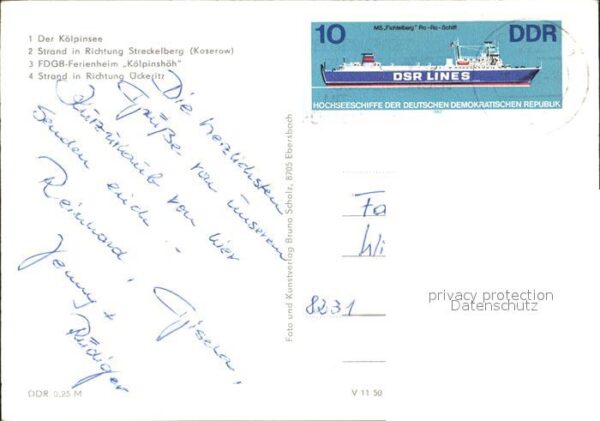 1 Der Kölpinsee
2 Strand in Richtung Streckelberg (Koserow)
3 FDGB-Ferienheim „Kölpinshöh"
4 Strand in Richtung Ückeritz
Die herzlichsten
Grüße von unserem
Kurzurlaub von hier
senden euch :
Reinhard, Gisela,
Jenny +
Rüdiger
DDR 0,25 M
Foto und Kunstverlag Bruno Scholz, 8705 Ebersbach
V 11 50
10 MS „Fichtelberg" Ro-Ro-Schiff DDR
DSR LINES
HOCHSEESCHIFFE DER DEUTSCHEN DEMOKRATISCHEN REPUBLIK
1982
Fa
Wi
8231
privacy protection
Datenschutz